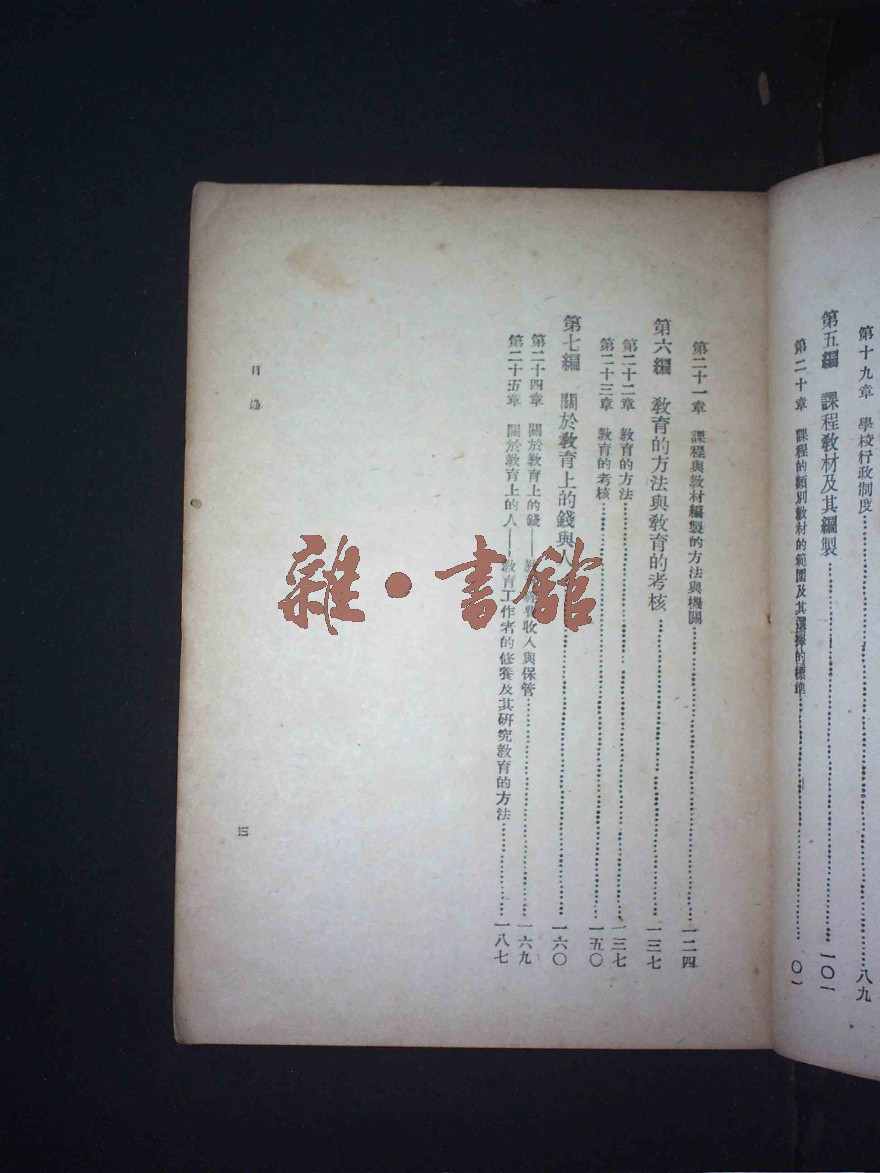 第十九章 學校行政制度……八九
第五編 課程教材及其編製……一〇一
第二十章 課程的類別教材的範圍及其選擇的標準……〇一
第二十一章 課程與教材編製的方法與機關……一二四
第六編 教育的方法與教育的考核……一三七
第二十二章 教育的方法……一三七
第二十三章 教育的考核……一五〇
第七編 關於教育上的錢與人……一六〇
第二十四章 關於教育上的錢——教 經費收入與保管……一六九
第二十五章 關於教育上的人——教育工作者的修養及其研究教育的方法……一八七
目錄
三
雜·書館